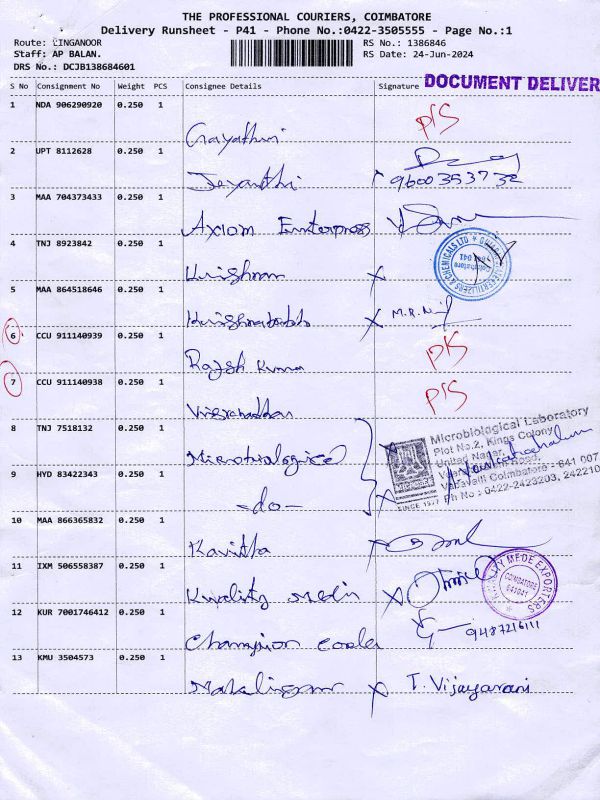 THE PROFESSIONAL COURIERS, COIMBATORE
Delivery Runsheet - P41 - Phone No.:0422-3505555 - Page No.:1
Route: LINGANOOR RS No.: 1386846
Staff: AP BALAN. RS Date: 24-Jun-2024
DRS No.: DCJB138684601
DOCUMENT DELIVER
S No Consignment No Weight PCS Consignee Details Signature
1 NDA 906290920 0.250 1 Gayathiri P/S
2 UPT 8112628 0.250 1 Jeyanthi 9600353732
3 MAA 704373433 0.250 1 Axiom Enterprises
4 TNJ 8923842 0.250 1 Krishnan X
5 MAA 864518646 0.250 1 X M.R.N
6 CCU 911140939 0.250 1 Rajesh Kumar P/S
7 CCU 911140938 0.250 1 P/S
8 TNJ 7518132 0.250 1 Microbiological
Microbiological Laboratory
Plot No.2, Kings Colony
United Nagar,
Coimbatore - 641 007
Ph No : 0422-2423203, 242210
SINCE 1977
9 HYD 83422343 0.250 1 -do- X
10 MAA 866365832 0.250 1 Kavitha X
11 IXM 506558387 0.250 1 Kwality Medi X
COIMBATORE
641041
12 KUR 7001746412 0.250 1 Champion Cooler 9487216111
13 KMU 3504573 0.250 1 Mahalingam X T. Vijayarani